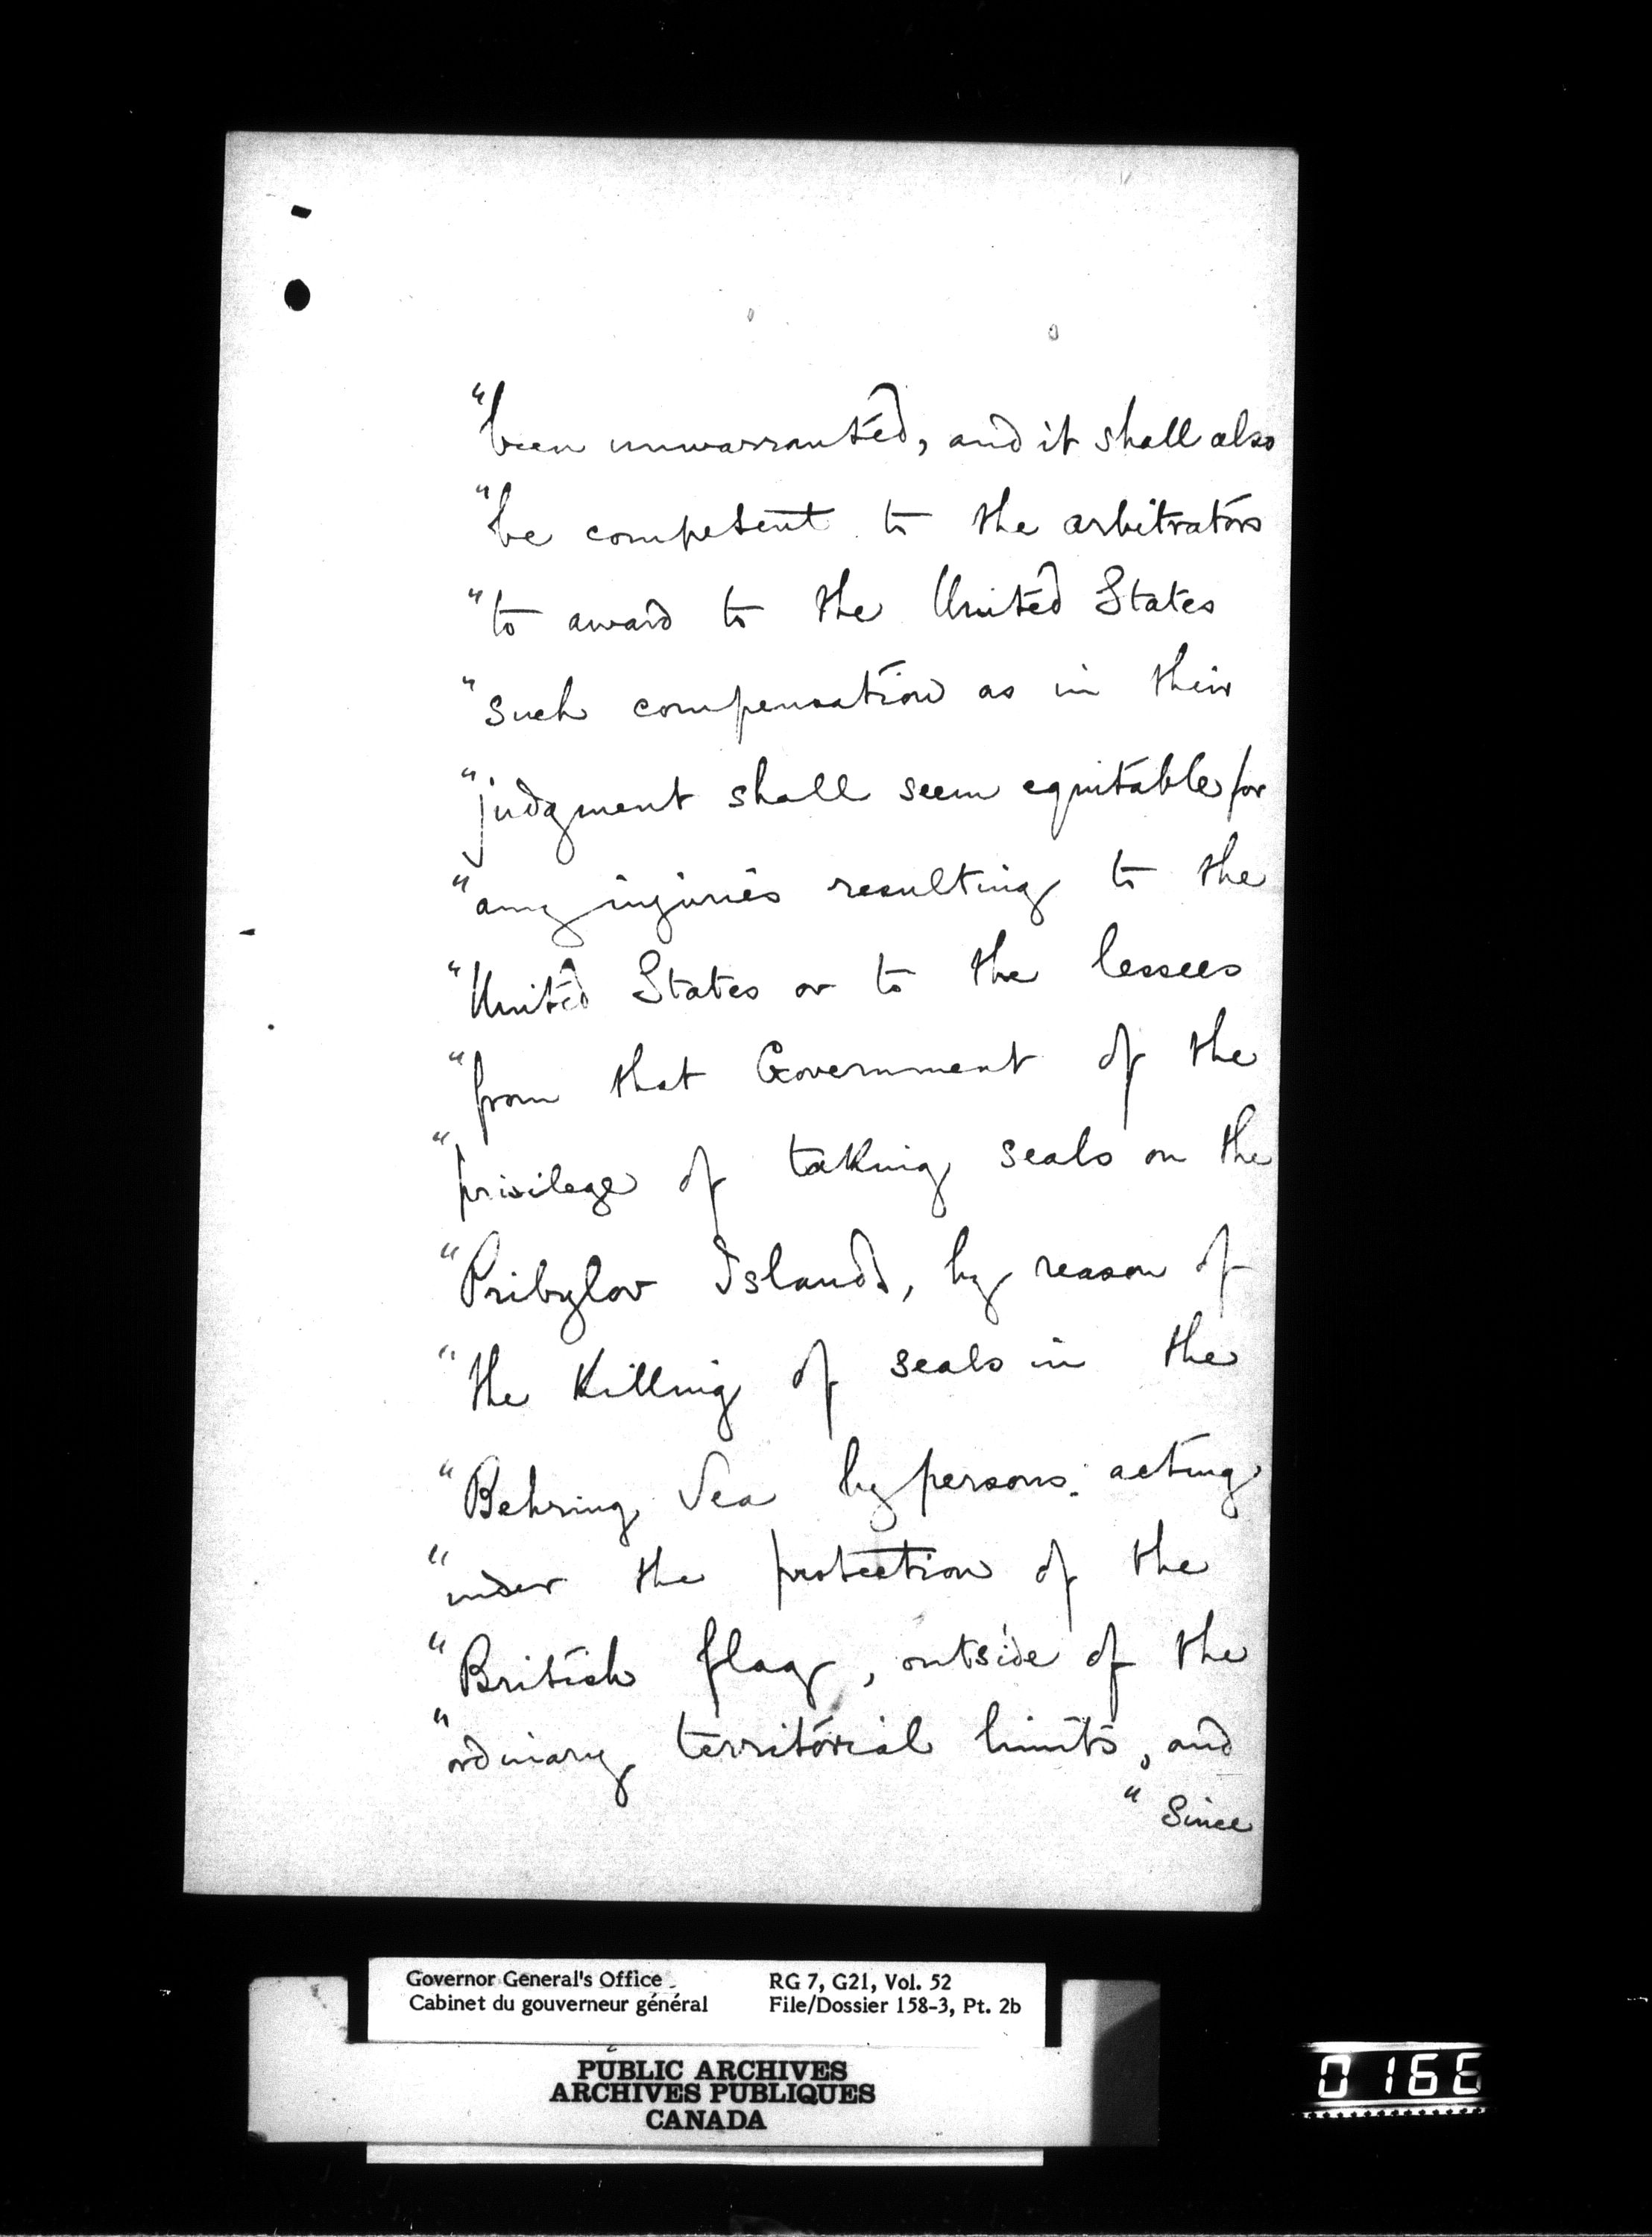 "been unwarranted, and it shall also
"be competent to the arbitrators
"to award to the United States
"such compensation as in their
"judgment shall seem equitable for
"any injuries resulting to the
"United States or to the lessees
"from that Government of the
"privilege of taking seals on the
"Pribylov Islands, by reason of
"the Killing of seals in the
"Behring Sea by persons acting
"under the protection of the
"British flag, outside of the
"ordinary territorial limits, and
"Since
Governor General's Office RG 7, G21, Vol. 52
Cabinet du gouverneur général File/Dossier 158-3, Pt. 2b
PUBLIC ARCHIVES
ARCHIVES PUBLIQUES
CANADA
0166